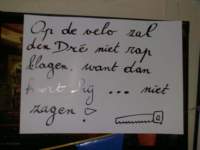 Op de velo zal
den Dré niet rap
klagen, want dan
hij ... niet
zagen!